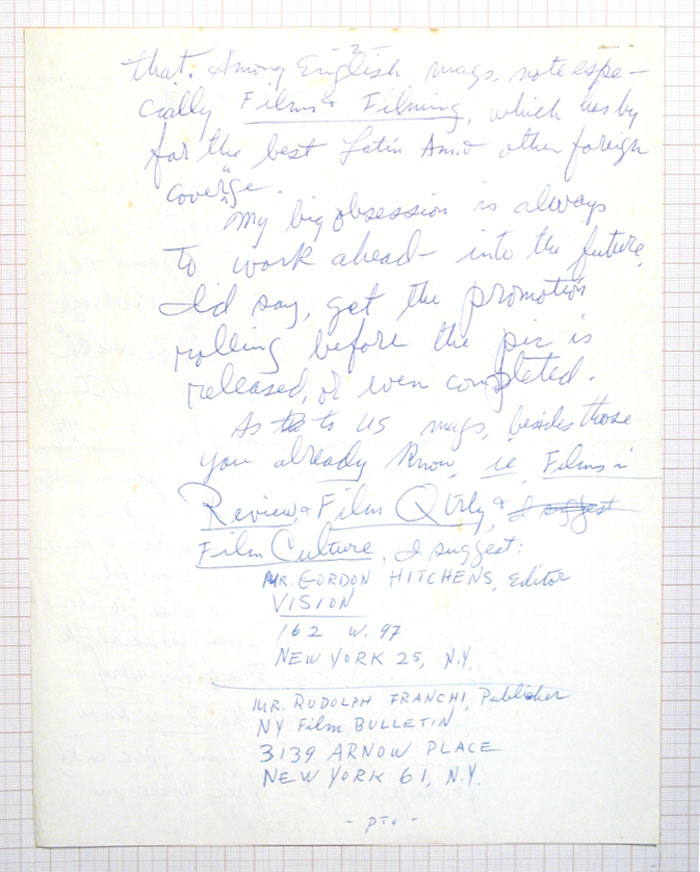 -2-
that. Among English mags, note espe-
cially Films & Filming, which has by
far the best Latin Am. & other foreign
coverage.
My big obsession is always
to work ahead - into the future,
I'd say, get the promotion
rolling before the pic is
released, or even completed.
As to to US mags, besides those
you already know, ie, Films in
Review, & Film Qtrly, & I suggest
Film Culture, I suggest:
MR. GORDON HITCHENS, Editor
VISION
162 W. 97
NEW YORK 25, N.Y.
MR. RUDOLPH FRANCHI, Publisher
NY Film BULLETIN
3139 ARNOW PLACE
NEW YORK 61, N.Y.
- PTO -